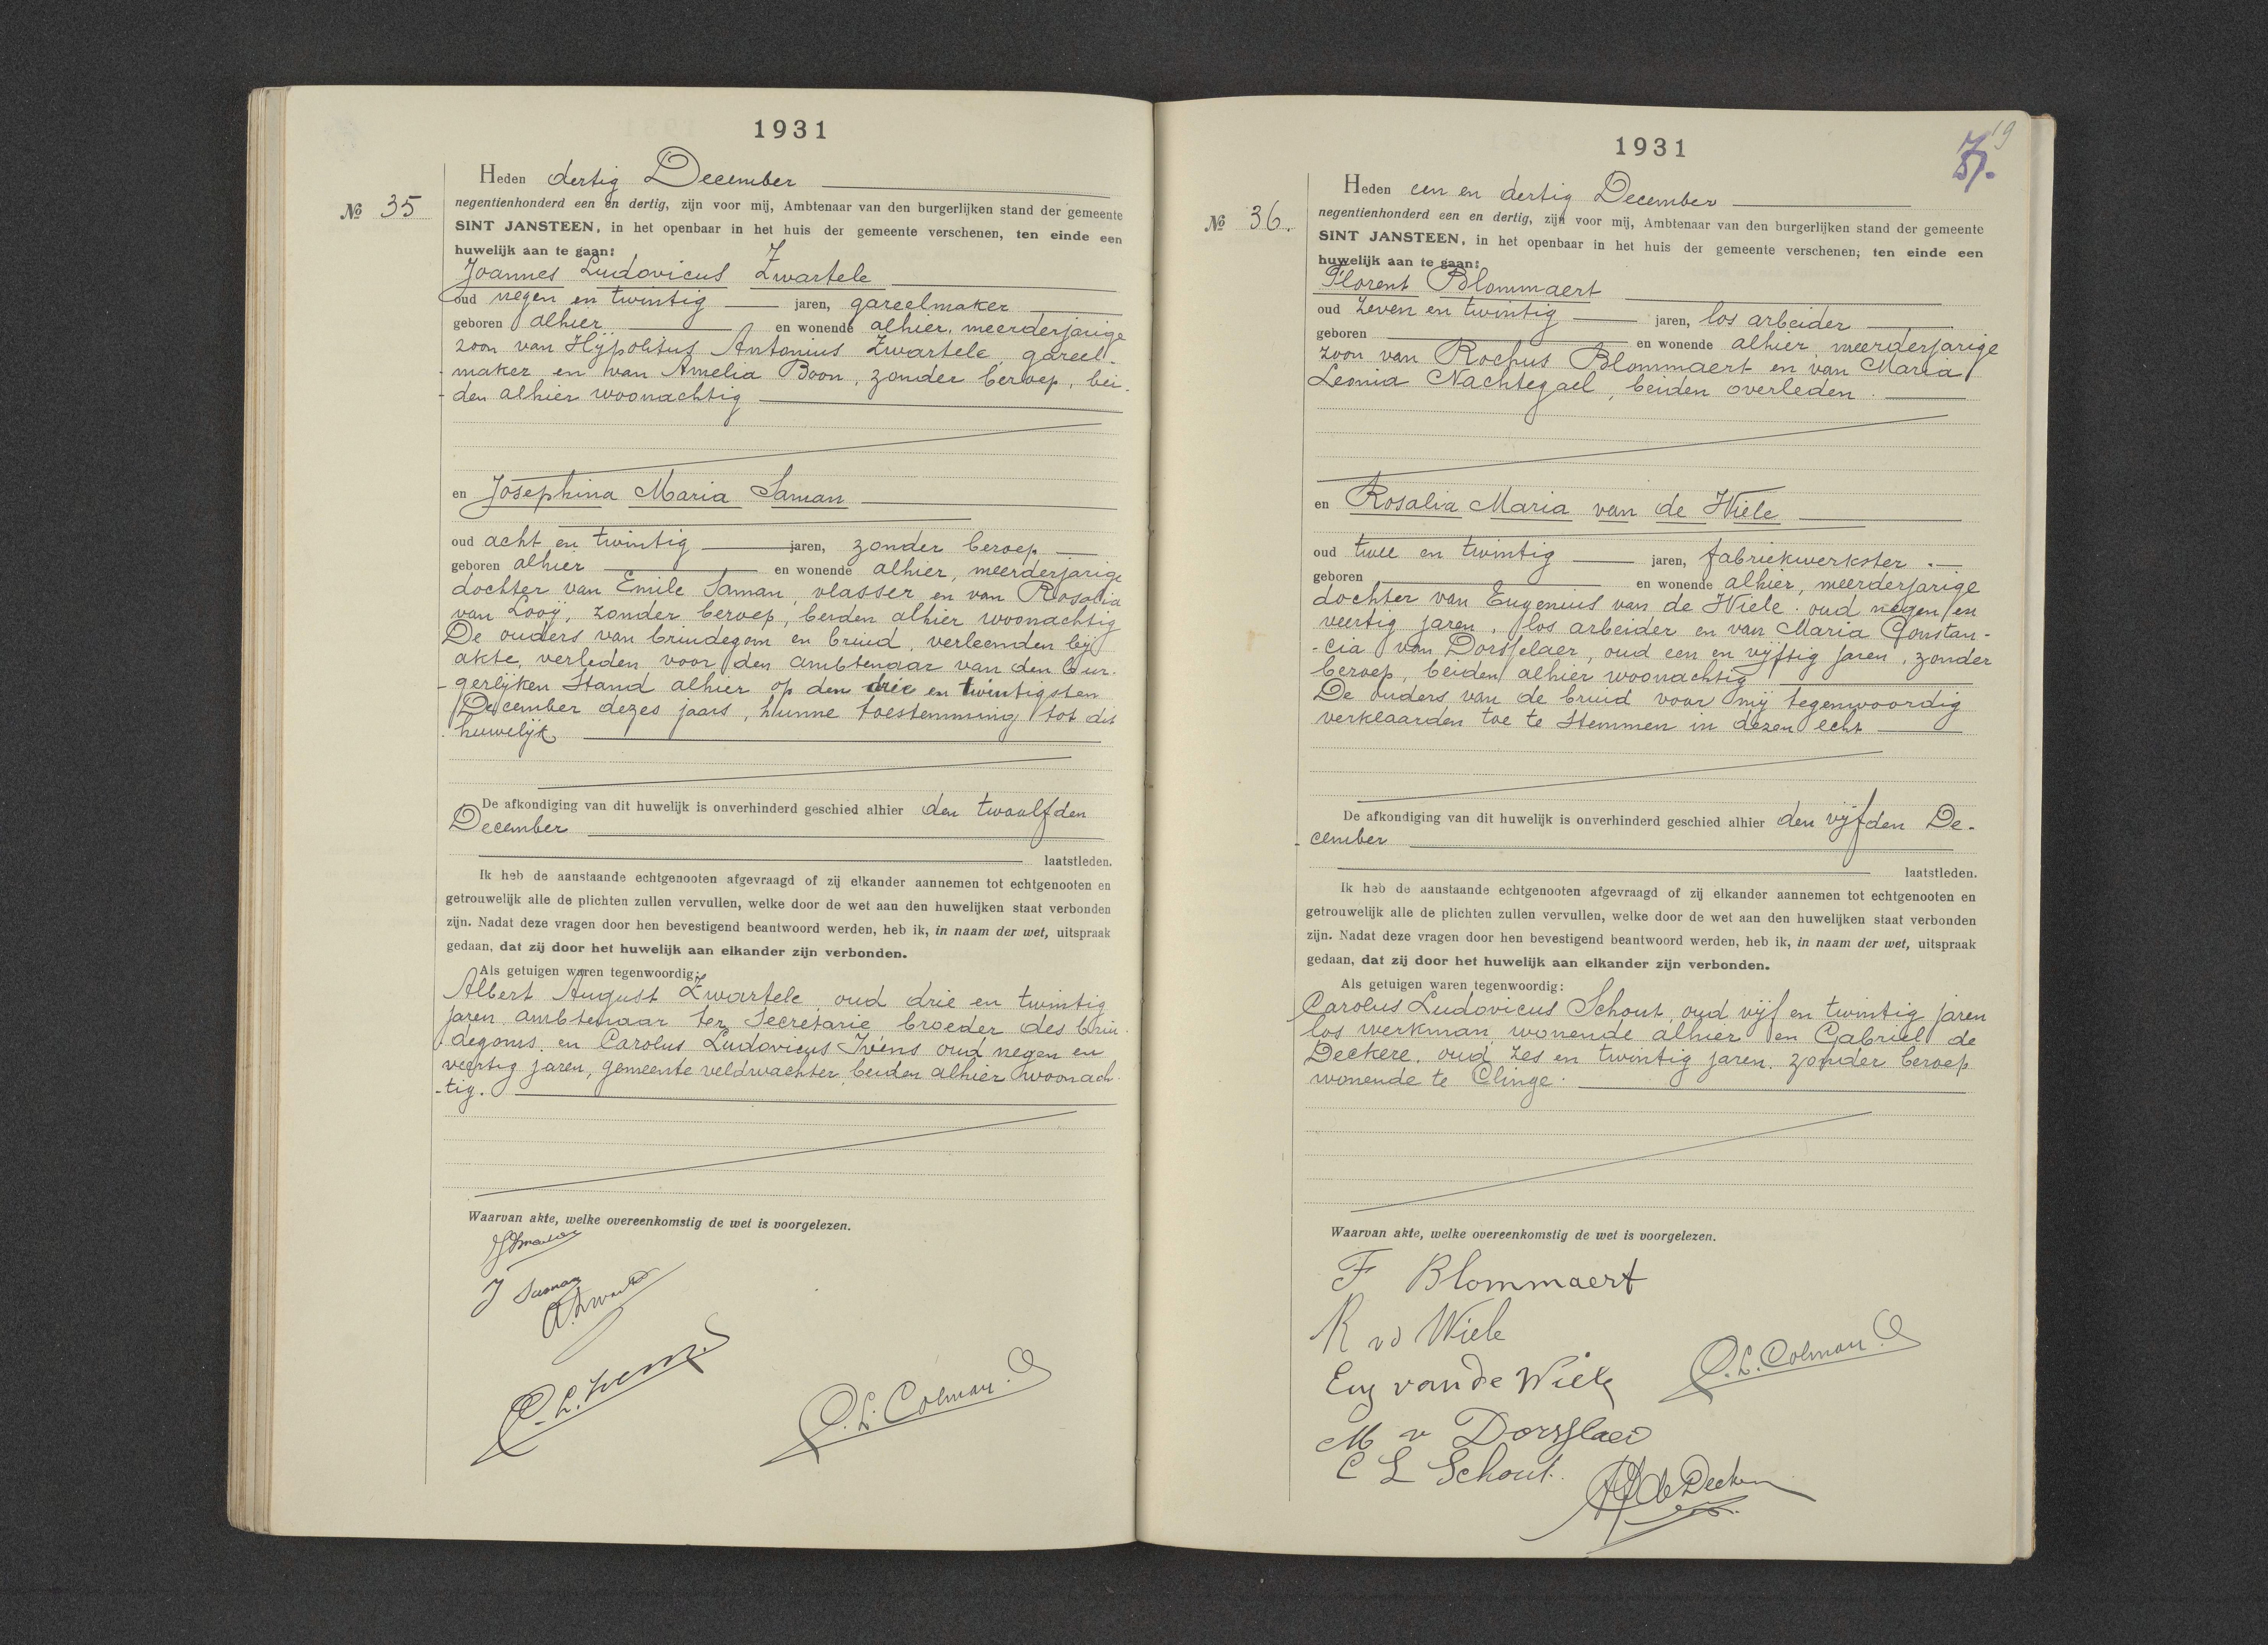 1931
Heden dertig December
№ 35
negentienhonderd een en dertig, zijn voor mij, Ambtenaar van den burgerlijken stand der gemeente
SINT JANSTEEN, in het openbaar in het huis der gemeente verschenen, ten einde een
huwelijk aan te gaan:
Joannes Ludovicus Zwartele
oud negen en twintig jaren, gareelmaker
geboren alhier en wonende alhier, meerderjarige
zoon van Hypolitus Antonius Zwartele, gareel-
maker en van Amelia Boon, zonder beroep, bei-
den alhier woonachtig
en Josephina Maria Saman
oud acht en twintig jaren, zonder beroep
geboren alhier en wonende alhier, meerderjarige
dochter van Emile Saman, vlasser en van Rosalia
van Looÿ, zonder beroep, beiden alhier woonachtig
De ouders van bruidegom en bruid, verleenden bij
akte, verleden voor den ambtenaar van den Bur-
gerlijken Stand alhier op den drie en twintigsten
December dezes jaars, hunne toestemming tot dit
huwelijk
De afkondiging van dit huwelijk is onverhinderd geschied alhier den twaalfden
December
laatstleden.
Ik heb de aanstaande echtgenooten afgevraagd of zij elkander aannemen tot echtgenooten en
getrouwelijk alle de plichten zullen vervullen, welke door de wet aan den huwelijken staat verbonden
zijn. Nadat deze vragen door hen bevestigend beantwoord werden, heb ik, in naam der wet, uitspraak
gedaan, dat zij door het huwelijk aan elkander zijn verbonden.
Als getuigen waren tegenwoordig:
Albert August Zwartele, oud drie en twintig
jaren ambtenaar ter Secretarie, broeder des brui-
degoms. en Carolus Ludovicus Ivens oud negen en
veertig jaren, gemeente veldwachter, beiden alhier woonach-
tig.
Waarvan akte, welke overeenkomstig de wet is voorgelezen.
J Saman
C. L. Ivens.
C. L. Colman.
1931
19
Heden een en dertig December
№ 36.
negentienhonderd een en dertig, zijn voor mij, Ambtenaar van den burgerlijken stand der gemeente
SINT JANSTEEN, in het openbaar in het huis der gemeente verschenen, ten einde een
huwelijk aan te gaan:
Florent Blommaert
oud zeven en twintig jaren, los arbeider
geboren en wonende alhier, meerderjarige
zoon van Rochus Blommaert en van Maria
Leonia Nachtegael, beiden overleden.
en Rosalia Maria van de Wiele
oud twee en twintig jaren, fabriekwerkster.
geboren en wonende alhier, meerderjarige
dochter van Eugenius van de Wiele. oud negen en
veertig jaren, los arbeider en van Maria Constan-
cia van Dorsselaer, oud een en vijftig jaren, zonder
beroep, beiden alhier woonachtig
De ouders van de bruid voor mij tegenwoordig
verklaarden toe te stemmen in dezen echt
De afkondiging van dit huwelijk is onverhinderd geschied alhier den vijfden De-
cember
laatstleden.
Ik heb de aanstaande echtgenooten afgevraagd of zij elkander aannemen tot echtgenooten en
getrouwelijk alle de plichten zullen vervullen, welke door de wet aan den huwelijken staat verbonden
zijn. Nadat deze vragen door hen bevestigend beantwoord werden, heb ik, in naam der wet, uitspraak
gedaan, dat zij door het huwelijk aan elkander zijn verbonden.
Als getuigen waren tegenwoordig:
Carolus Ludovicus Schout, oud vijf en twintig jaren
los werkman, wonende alhier en Gabriel de
Deckere. oud zes en twintig jaren. zonder beroep
wonende te Clinge.
Waarvan akte, welke overeenkomstig de wet is voorgelezen.
F Blommaert
R vd Wiele
Eug van de Wiele
C. L. Colman.
M v Dorsslaer
C L Schout.